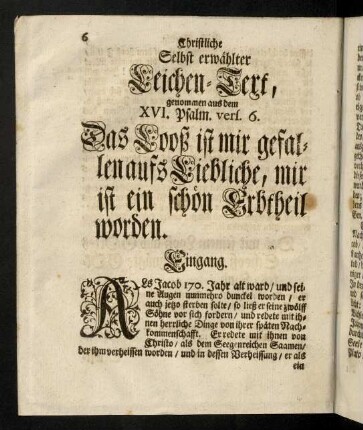 6
Christliche
Selbst erwählter
Leichen-Text,
genommen aus dem
XVI. Psalm. vers. 6.
Das Looß ist mir gefal-
len aufs Liebliche, mir
ist ein schön Erbtheil
worden.
Eingang.
ALs Jacob 170. Jahr alt ward/ und sei-
ne Augen nunmehro dunckel worden/ er
auch jetzo sterben solte/ so ließ er seine zwölff
Söhne vor sich fordern/ und redete mit ih-
nen herrliche Dinge von ihrer späten Nach-
kommenschafft. Er redete mit ihnen von
Christo/ als dem Seegenreichen Saamen/
der ihm verheissen worden/ und in dessen Verheissung/ er als
ein